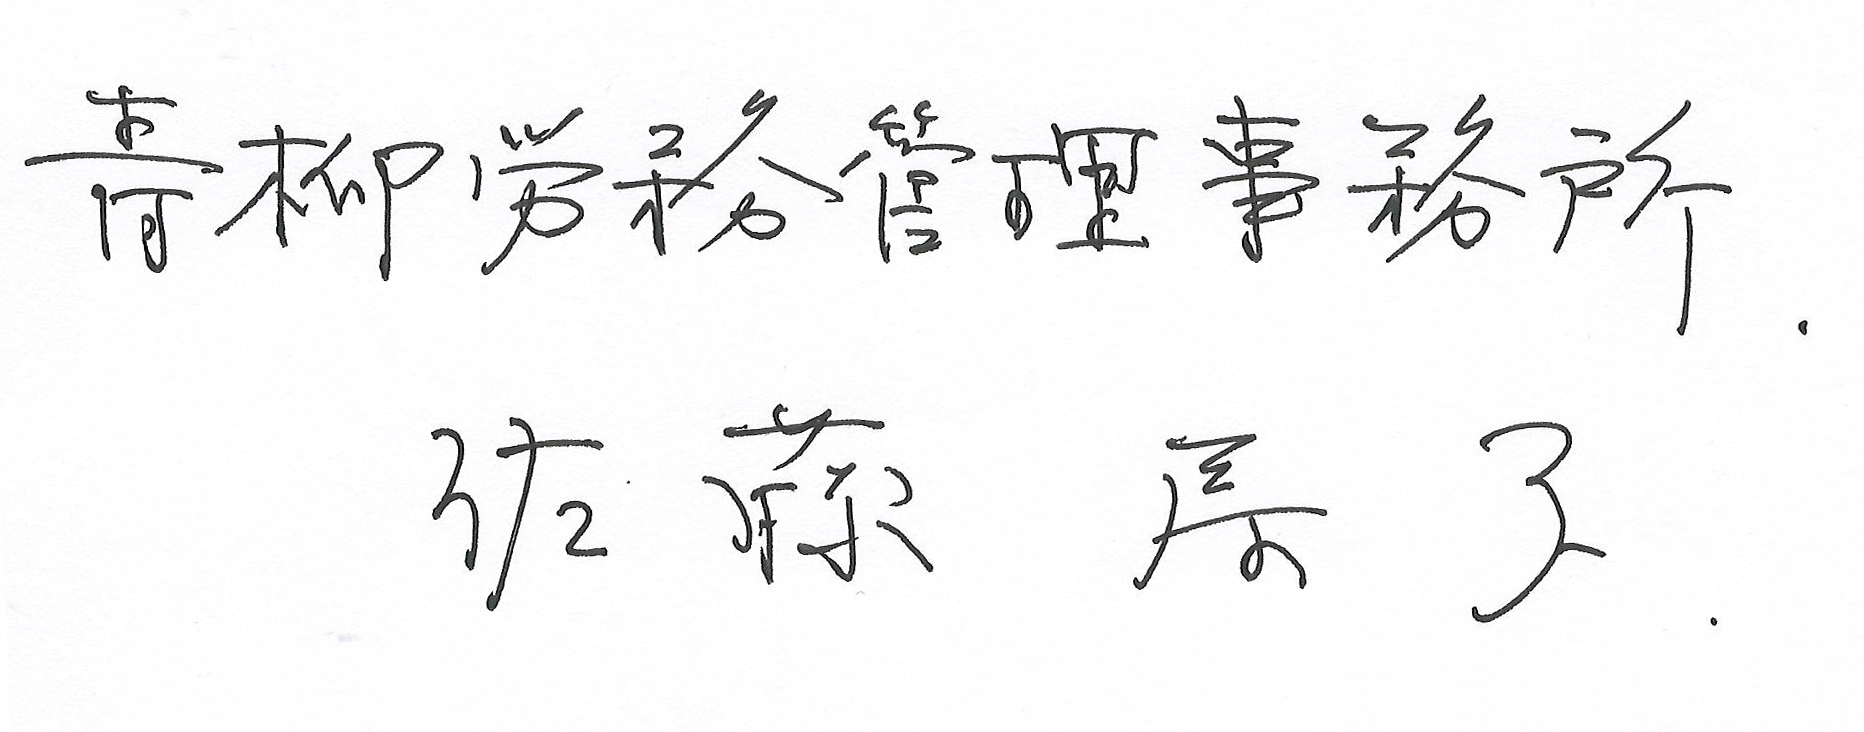 青柳労務管理事務所.
佐藤 子.